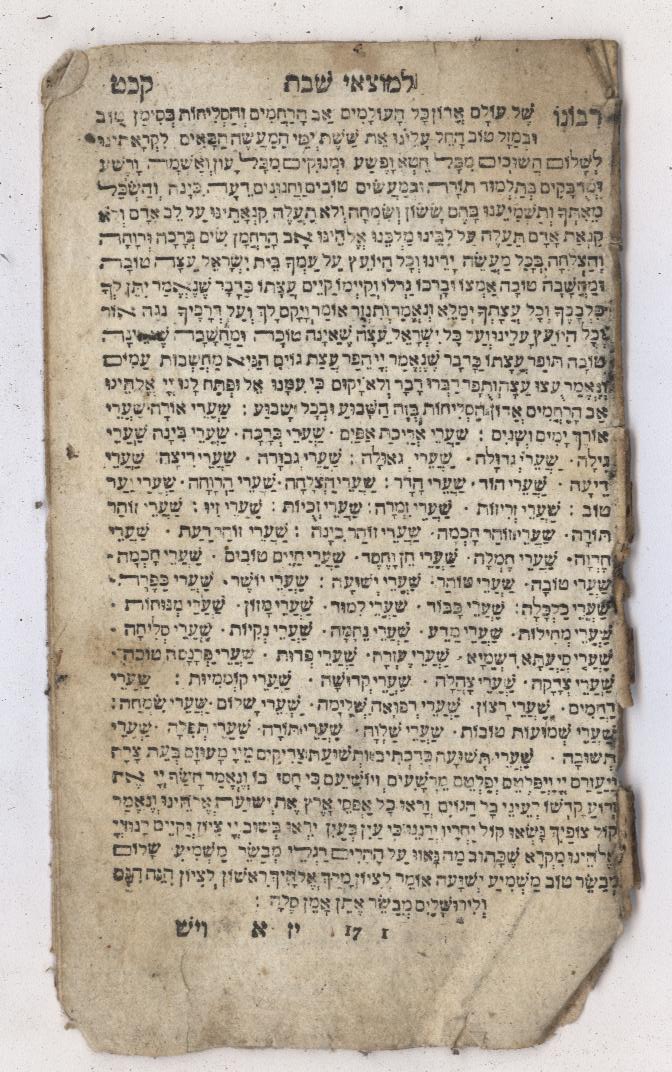 למוצאי שבת קכט
רבונו של עולם אדון כל העולמים אב הרחמים והסליחות בסימן טוב
ובמזל טוב החל עלינו את ששת ימי המעשה הבאים לקראתינו
לשלום חשוכים מכל חטא ופשע ומנוקים מכל עון ואשמה ורשע
ומדבקים בתלמוד תורה ובמעשים טובים וחנונים דעה בינה והשכל
מאתך ותשמיענו בהם ששון ושמחה ולא תעלה קנאתינו על לב אדם ולא
קנאת אדם תעלה על לבינו מלכנו אלהינו אב הרחמן שים ברכה ורוחה
והצלחה בכל מעשה ידינו וכל היועץ על עמך בית ישראל עצה טובה
ומחשבה טובה אמצו וברכו גדלו וקיימו קיים עצתו כדבר שנאמר יתן לך
כלבבך וכל עצתך ימלא ונאמר ותגזר אומר ויקם לך ועל דרכיך נגה אור
וכל היועץ עלינו ועל כל ישראל עצה שאינה טובה ומחשבה שאינה
טובה תופר עצתו כדבר שנאמר יי הפר עצת גוים הניא מחשבות עמים
ונאמר עצו עצה ותפר דברו דבר ולא יקום כי עמנו אל ופתח לנו יי אלהינו
אב הרחמים אדון הסליחות בזה השבוע ובכל שבוע : שערי אורה שערי
אורך ימים ושנים : שערי אריכת אפים · שערי ברכה · שערי בינה שערי
גילה · שערי גדולה · שערי גאולה : שערי גבורה · שערי דיצה שערי
דיעה · שערי הוד · שערי הדר : שערי הצלחה · שערי הרוחה · שערי ועד
טוב : שערי זריזות · שערי זמרה : שערי זכיות : שערי זיו : שערי זוהר
תורה · שערי זוהר חכמה · שערי זוהר בינה : שערי זוהר דעת · שערי
חדוה · שערי חמלה · שערי חן וחסד · שערי חיים טובים · שערי חכמה ·
שערי טובה · שערי טוהר · שערי ישועה : שערי יושר · שערי כפרה ·
שערי כלכלה : שערי כבוד · שערי למוד · שערי מזון · שערי מנוחות ·
שערי מחילות · שערי מדע · שערי נחמה · שערי נקיות · שערי סליחה ·
שערי סיעתא דשמיא · שערי עזרה · שערי פדות · שערי פרנסה טובה ·
שערי צדקה · שערי צהלה · שערי קדושה · שערי קוממיות : שערי
רחמים · שערי רצון · שערי רפואה שלימה · שערי שלום · שערי שמחה :
שערי שמועות טובות · שערי שלוה · שערי תורה · שערי תפלה · שערי
תשובה · שערי תשועה כדכתיב ותשועת צדיקים מיי מעוזם בעת צרה
ויעזרם יי ויפלטם יפלטם מרשעים ויושיעם כי חסו בו ונאמר חשף יי את
זרוע קדשו לעיני כל הגוים וראו כל אפסי ארץ את ישועת אלהינו ונאמר
קול צופיך נשאו קול יחדיו ירננו כי עין בעין יראו בשוב יי ציון וקיים לנו יי
אלהינו מקרא שכתוב מה נאוו על ההרים רגלי מבשר משמיע שלום
מבשר טוב משמיע ישועה אומר לציון מלך אלהיך ראשון לציון הנה הנם
ולירושלים מבשר אתן אמן סלה :
1 17 יז א ויש